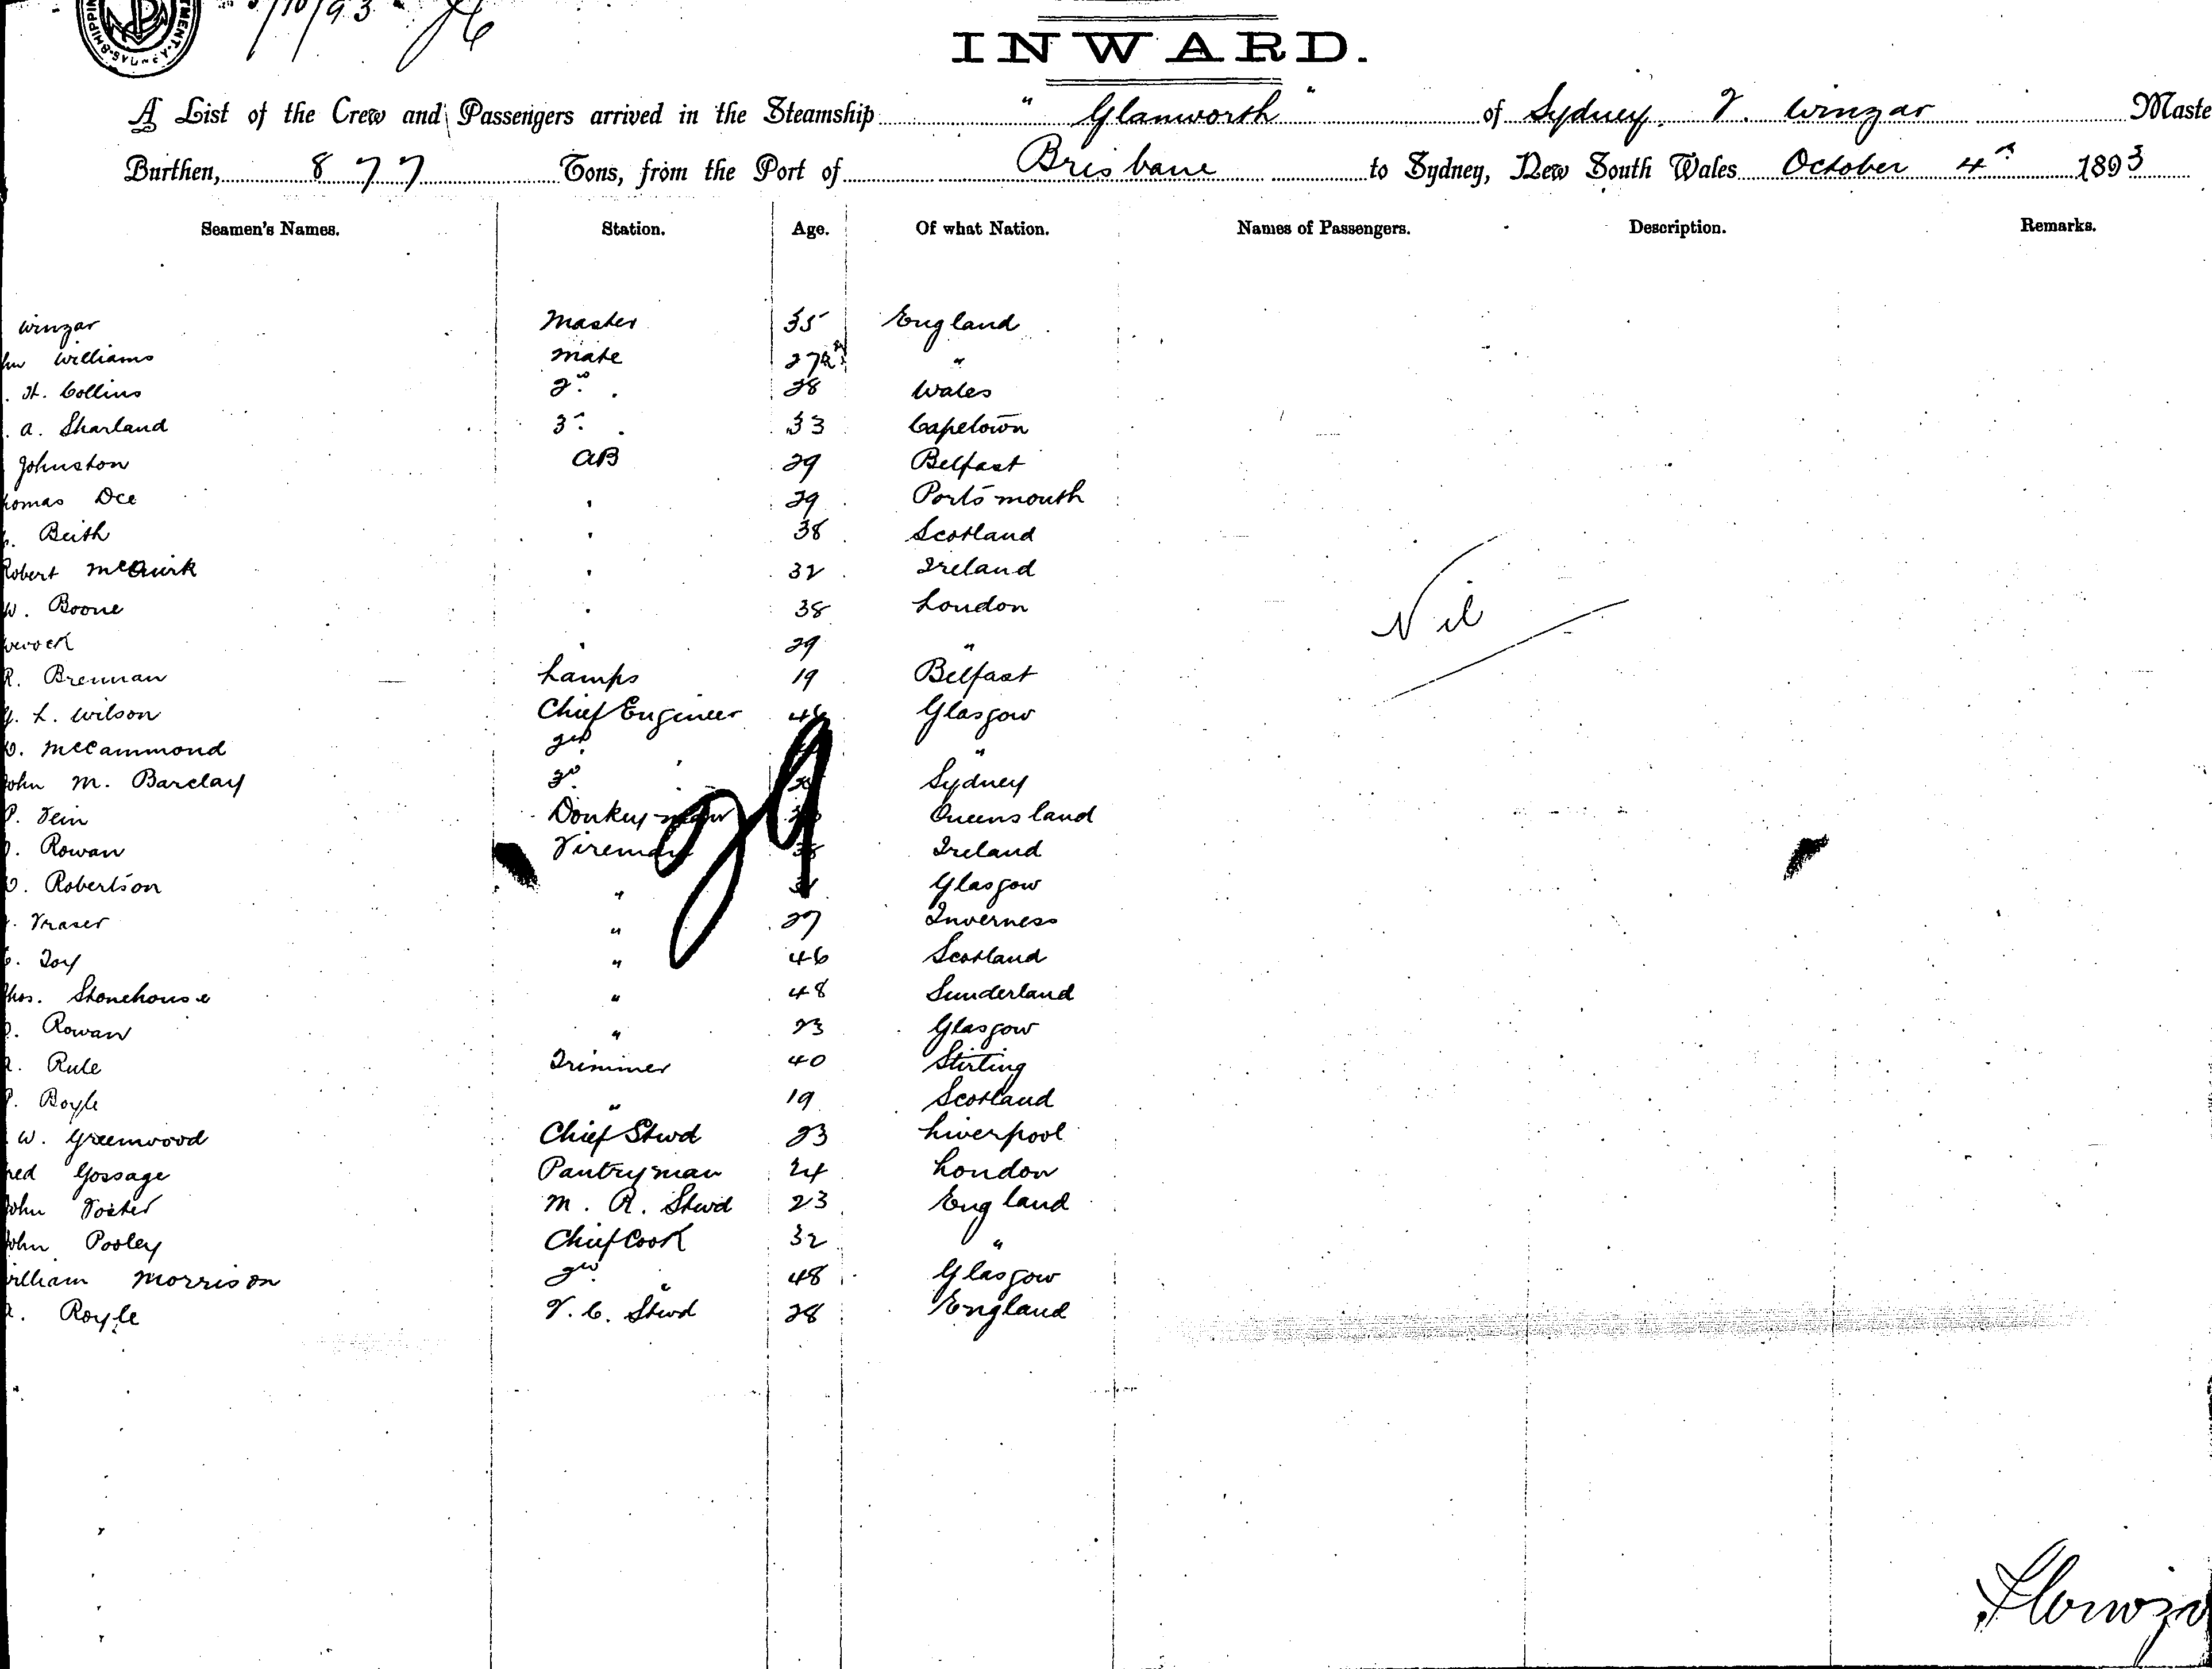 5/10/93
INWARD.
A List of the Crew and Passengers arrived in the Steamship " Glanworth " of Sydney, F. Winzar Maste
Burthen, 877 Tons, from the Port of Brisbane to Sydney, New South Wales October 4th 1893
Seamen's Names. Station. Age. Of what Nation. Names of Passengers. Description. Remarks.
Winzar Master 35 England
Williams Mate 27 "
H. Collins 2nd 28 Wales
A. Sharland 3rd 33 Capetown
Johnston AB 29 Belfast
homas Dce 29 Portsmouth
Beith 38 Scotland
Robert McQuirk 32 Ireland
W. Boone 38 London
29 "
Nil
R. Brennan Lamps 19 Belfast
L. Wilson Chief Engineer 46 Glasgow
McCammond 2nd "
John M. Barclay 3rd Sydney
P. Fein Donkeyman Queensland
Rowan Fireman 38 Ireland
Robertson " Glasgow
Fraser " 27 Inverness
Toy " 46 Scotland
hos. Stonehouse " 48 Sunderland
Rowan " 23 Glasgow
Rule Trimmer 40 Stirling
P. Boyle " 19 Scotland
W. Greenwood Chief Stwd 23 Liverpool
red Gossage Pantryman 24 London
John Foster M. R. Stwd 23 England
John Pooley Chief Cook 32 "
William Morrison 2nd " 48 Glasgow
Royle F. C. Stwd 28 England